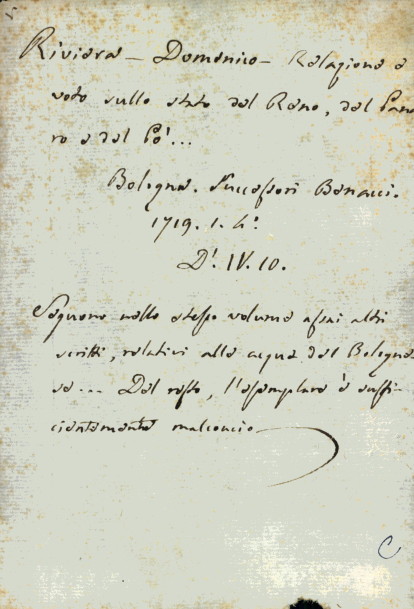 Riviera - Domenico - Relazione e
voto sullo stato del Reno, del Pana
ro e del Pò!...
Bologna. Successori Benacci.
1719. 1. 4º.
Dº. IV. 10.
Seguono nello stesso volume assai altri
scritti, relativi alle acque del Bologne
se... Del resto, l'esemplare è suffi-
cientemente malconcio
C